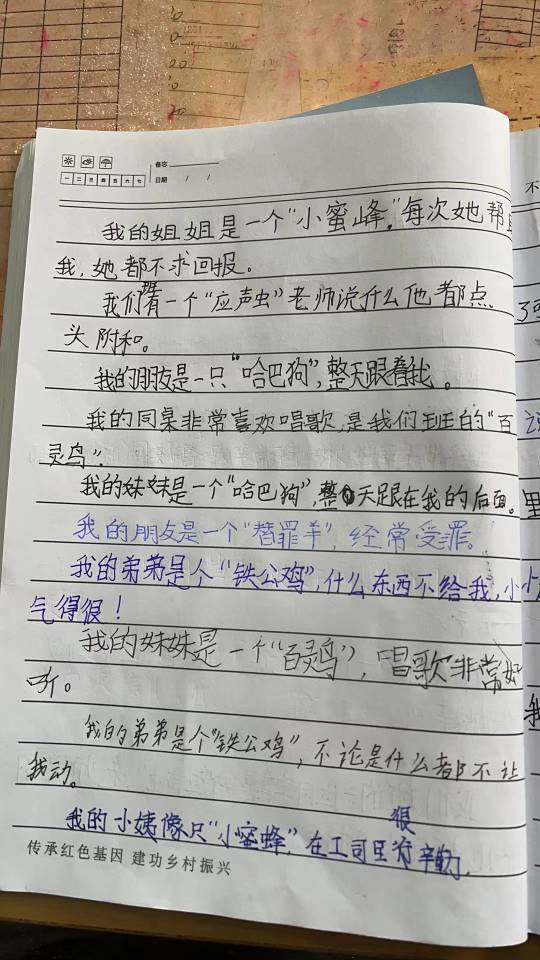 备忘
一 二 三 四 五 六 七 日期 / /
我的姐姐是一个"小蜜峰，"每次她帮
我，她都不求回报。
我们班有一个"应声虫"老师说什么他都点
头附和。
我的朋友是一只"哈巴狗"，整天跟着我。
我的同桌非常喜欢唱歌，是我们班的"百
灵鸟"。
我的妹妹是一个"哈巴狗"，整天跟在我的后面。
我的朋友是一个"替罪羊"，经常受罪。
我的弟弟是个"铁公鸡"，什么东西不给我，小
气得很！
我的妹妹是一个"百灵鸟"，唱歌非常好
听。
我的弟弟是个"铁公鸡"，不论是什么都不让
我动。
我的小姨像只"小蜜蜂"，在工司里很辛勤。
传承红色基因 建功乡村振兴